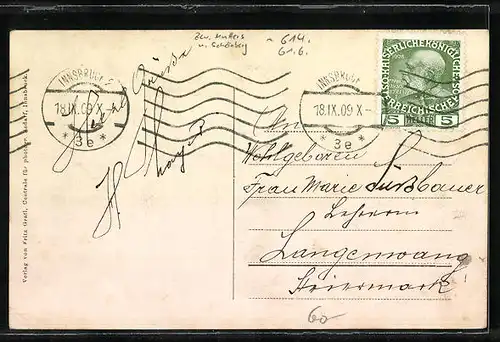 Bzw. Mutters
u. Schönberg
- 614.
61.6.
INNSBRUCK
18.IX.09 X-
* 3e *
INNSBRUCK
18.IX.09 X-
* 3e *
KAISERLICHE KÖNIGLICHE
ÖSTERREICHISCHE POST
5 HELLER 5
An
Wohlgeboren
Frau Marie Süßbauer
Lehrerin
Langenwang
Steiermark
60-
Verlag von Fritz Gratl, Centrale für photogr. Bedarf, Innsbruck.